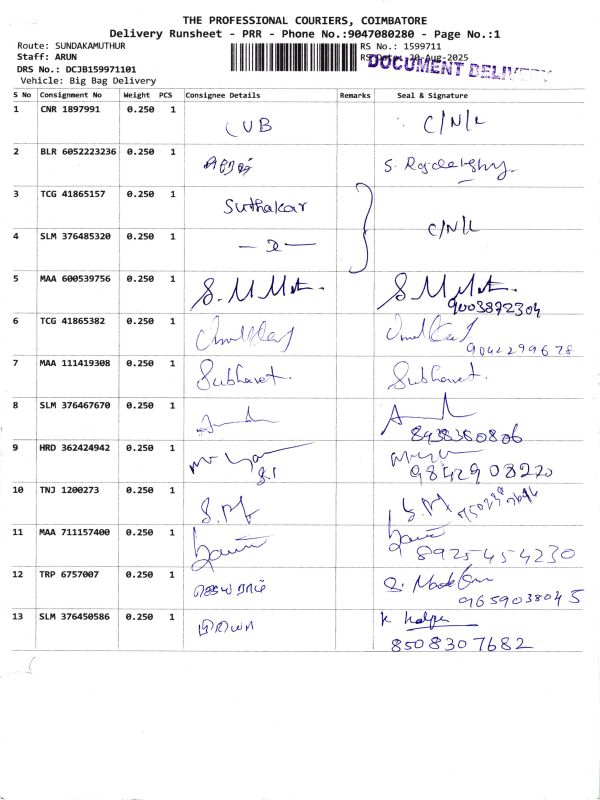 THE PROFESSIONAL COURIERS, COIMBATORE
Delivery Runsheet - PRR - Phone No.:9047080280 - Page No.:1
Route: SUNDAKAMUTHUR RS No.: 1599711
Staff: ARUN 20-Aug-2025
DOCUMENT DELIVERY
DRS No.: DCJB159971101
Vehicle: Big Bag Delivery
S No Consignment No Weight PCS Consignee Details Remarks Seal & Signature
1 CNR 1897991 0.250 1 CUB C/N/L
2 BLR 6052223236 0.250 1 S.
3 TCG 41865157 0.250 1 Suthakar
C/N/L
4 SLM 376485320 0.250 1
5 MAA 600539756 0.250 1 S. M. S. M.
9003872304
6 TCG 41865382 0.250 1
9042299678
7 MAA 111419308 0.250 1
8 SLM 376467670 0.250 1
8438380806
9 HRD 362424942 0.250 1
9842908220
10 TNJ 1200273 0.250 1
11 MAA 711157400 0.250 1
8925454230
12 TRP 6757007 0.250 1 S.
9659038045
13 SLM 376450586 0.250 1 K
8508307682